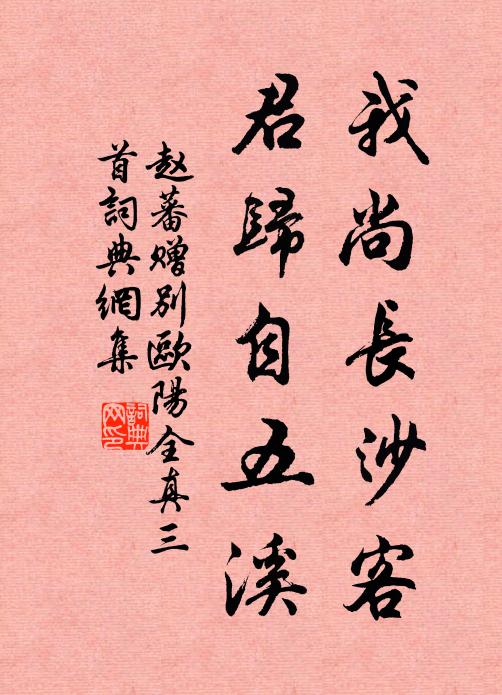 我尚長沙客
君歸自五溪
赵蕃赠别歐陽全真三
首詞典網集
詞典
网印